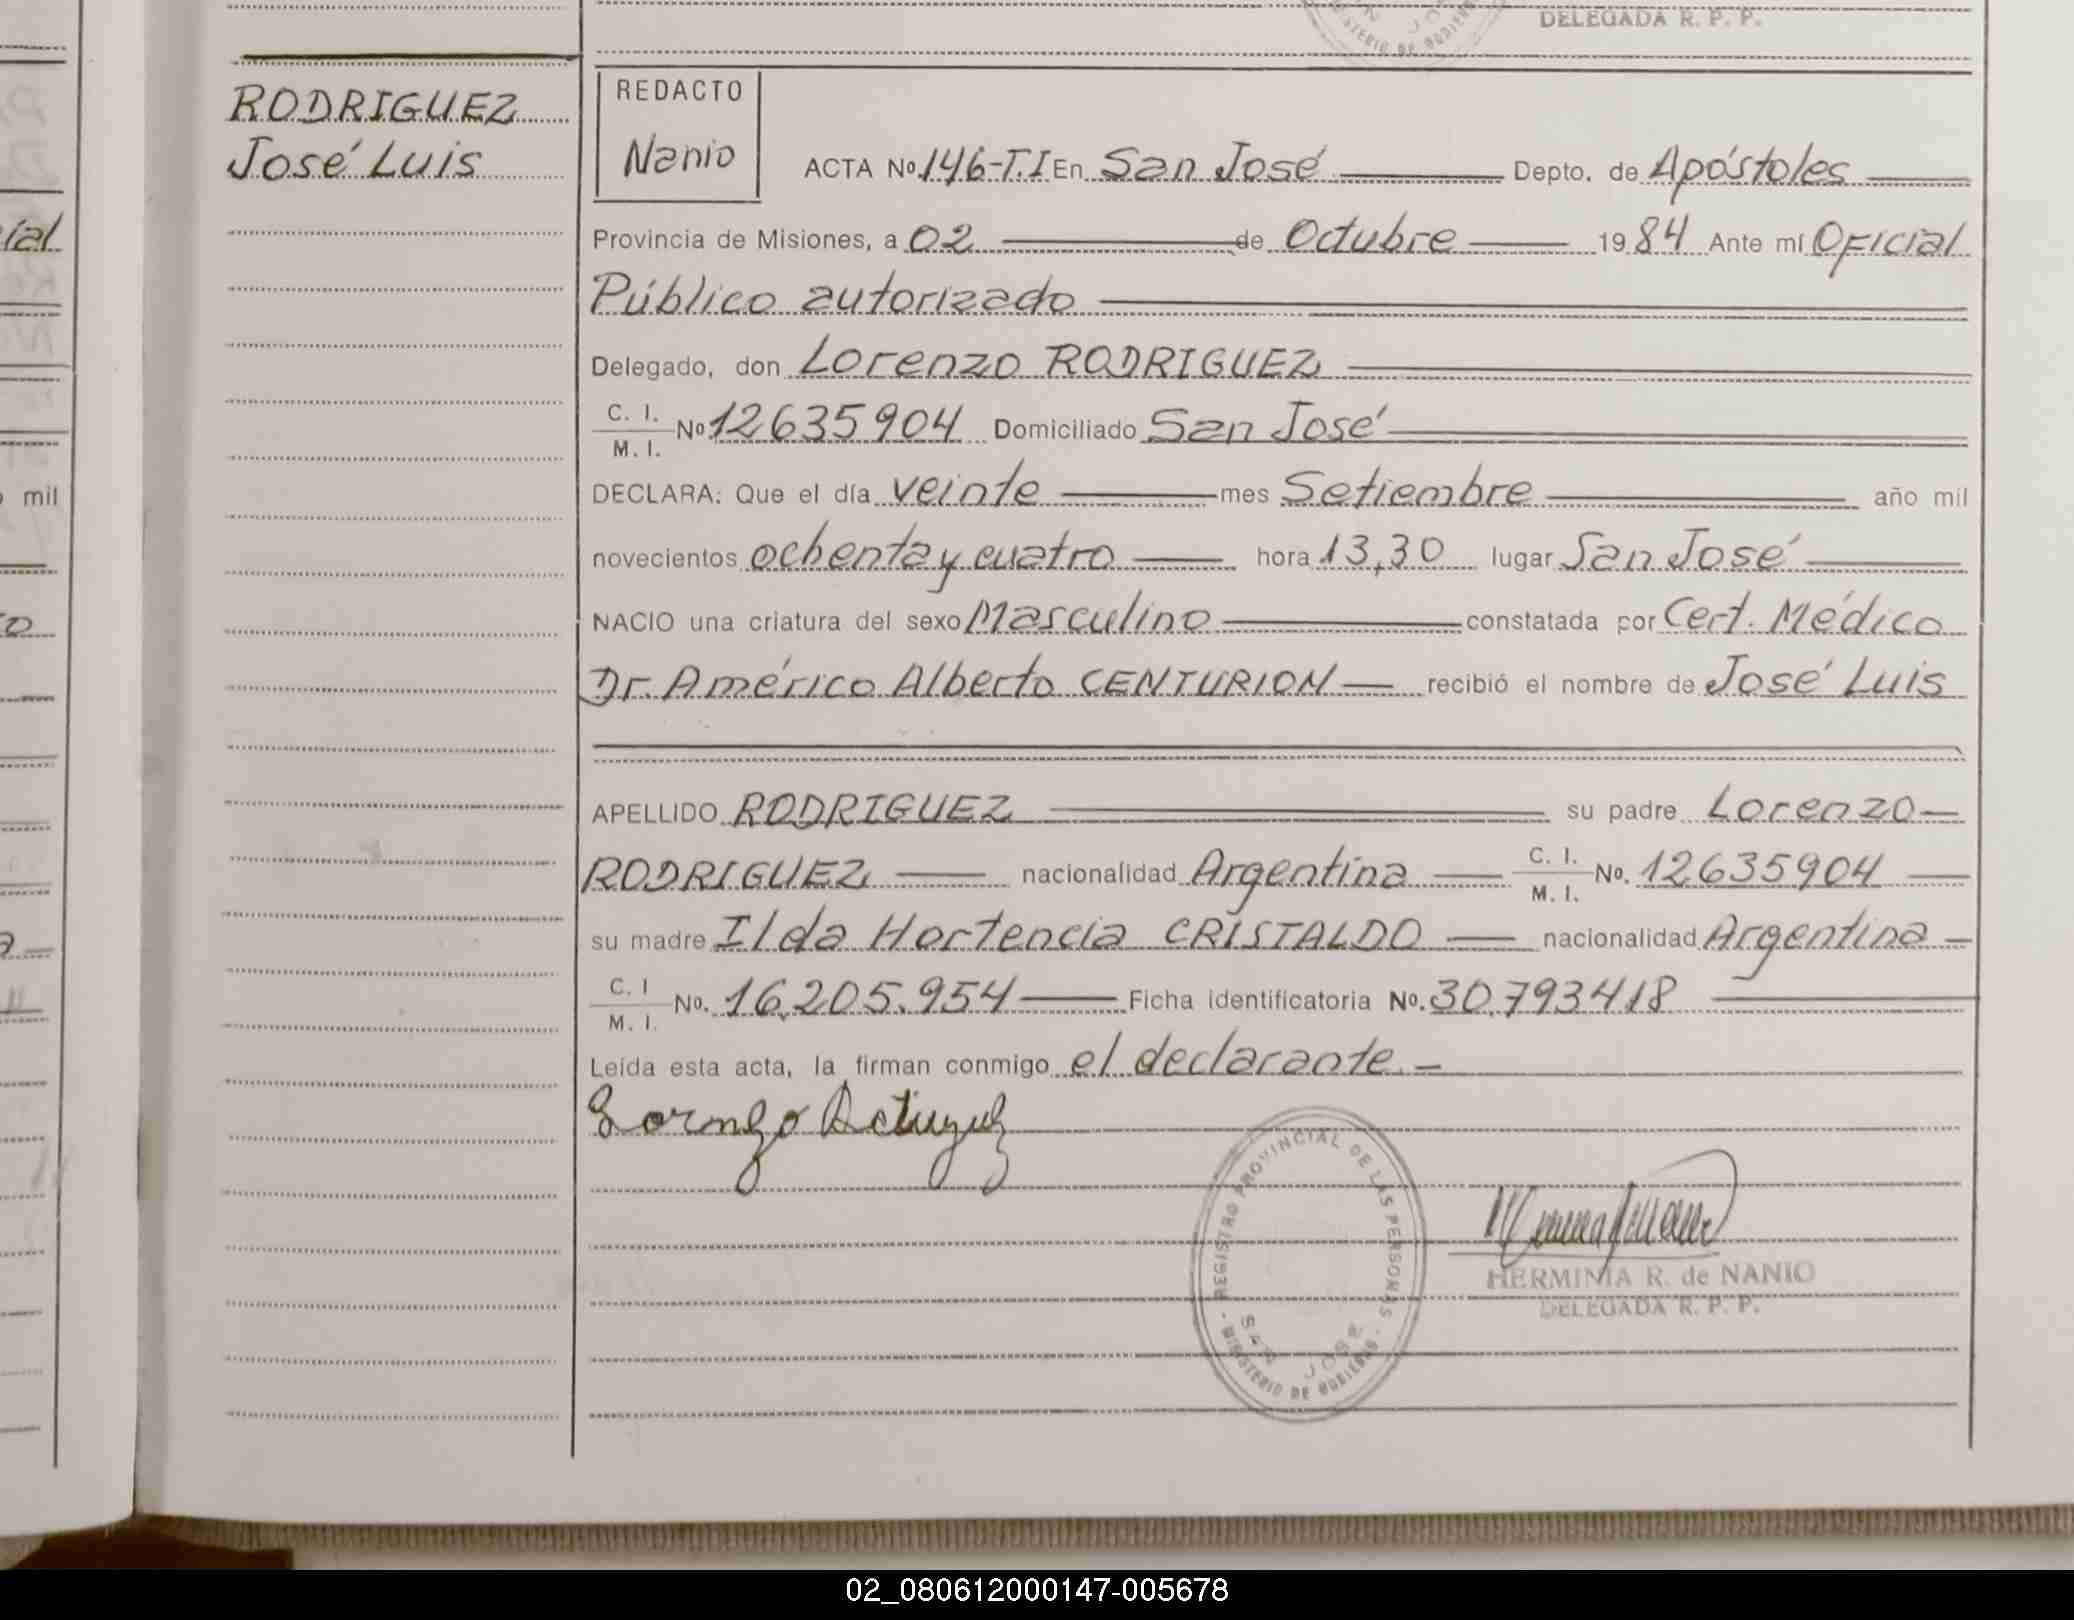 DELEGADA R. P. P.
RODRIGUEZ
José Luis
REDACTO
Nanio
ACTA Nº 146-T.I En San José Depto. de Apóstoles
Provincia de Misiones, a 02 de Octubre 1984 Ante mí Oficial
Público autorizado
Delegado, don Lorenzo RODRIGUEZ
C. I.
M. I. Nº 12635904 Domiciliado San José
DECLARA: Que el día veinte mes Setiembre año mil
novecientos ochenta y cuatro hora 13,30 lugar San José
NACIO una criatura del sexo Masculino constatada por Cert. Médico
Dr. Américo Alberto CENTURION recibió el nombre de José Luis
APELLIDO RODRIGUEZ su padre Lorenzo
RODRIGUEZ nacionalidad Argentina C. I.
M. I. Nº. 12635904
su madre Ilda Hortencia CRISTALDO nacionalidad Argentina
C. I
M. I. Nº. 16.205.954 Ficha identificatoria Nº. 30.793418
Leída esta acta, la firman conmigo el declarante.
REGISTRO PROVINCIAL DE LAS PERSONAS
SAN JOSE
MINISTERIO DE GOBIERNO
HERMINIA R. de NANIO
DELEGADA R. P. P.
ial
mil
02_080612000147-005678